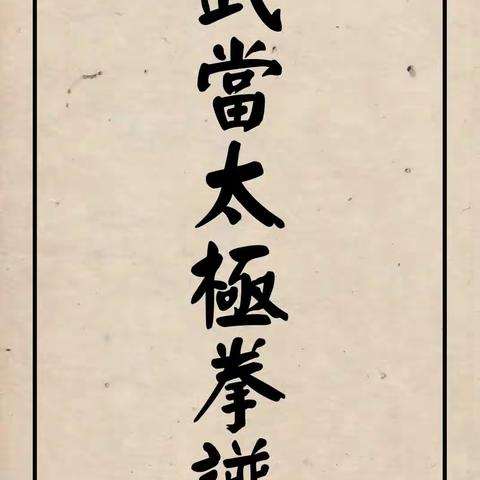 武當太極拳譜